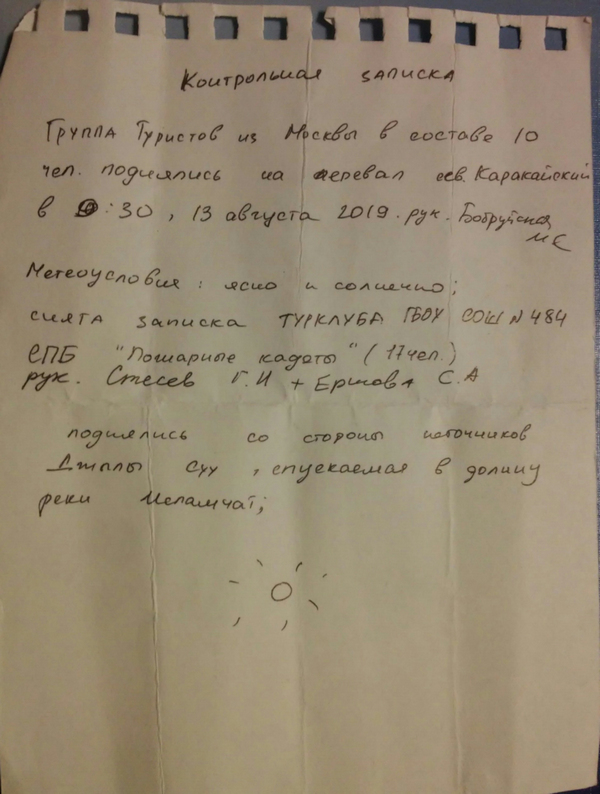 Контрольная записка
Группа Туристов из Москвы в составе 10
чел. поднялись на перевал сев. Каракайский
в :30, 13 августа 2019. рук. Бобруйская
МС
Метеоусловия: ясно и солнечно;
снята записка ТУРКЛУБА ГБОУ СОШ N 484
СПБ "Пожарные кадеты" (17 чел.)
рук. Стесев Г.И + Ершова С.А
поднялись со стороны источников
Джилы Суу, спускаемая в долину
реки Исламчат;